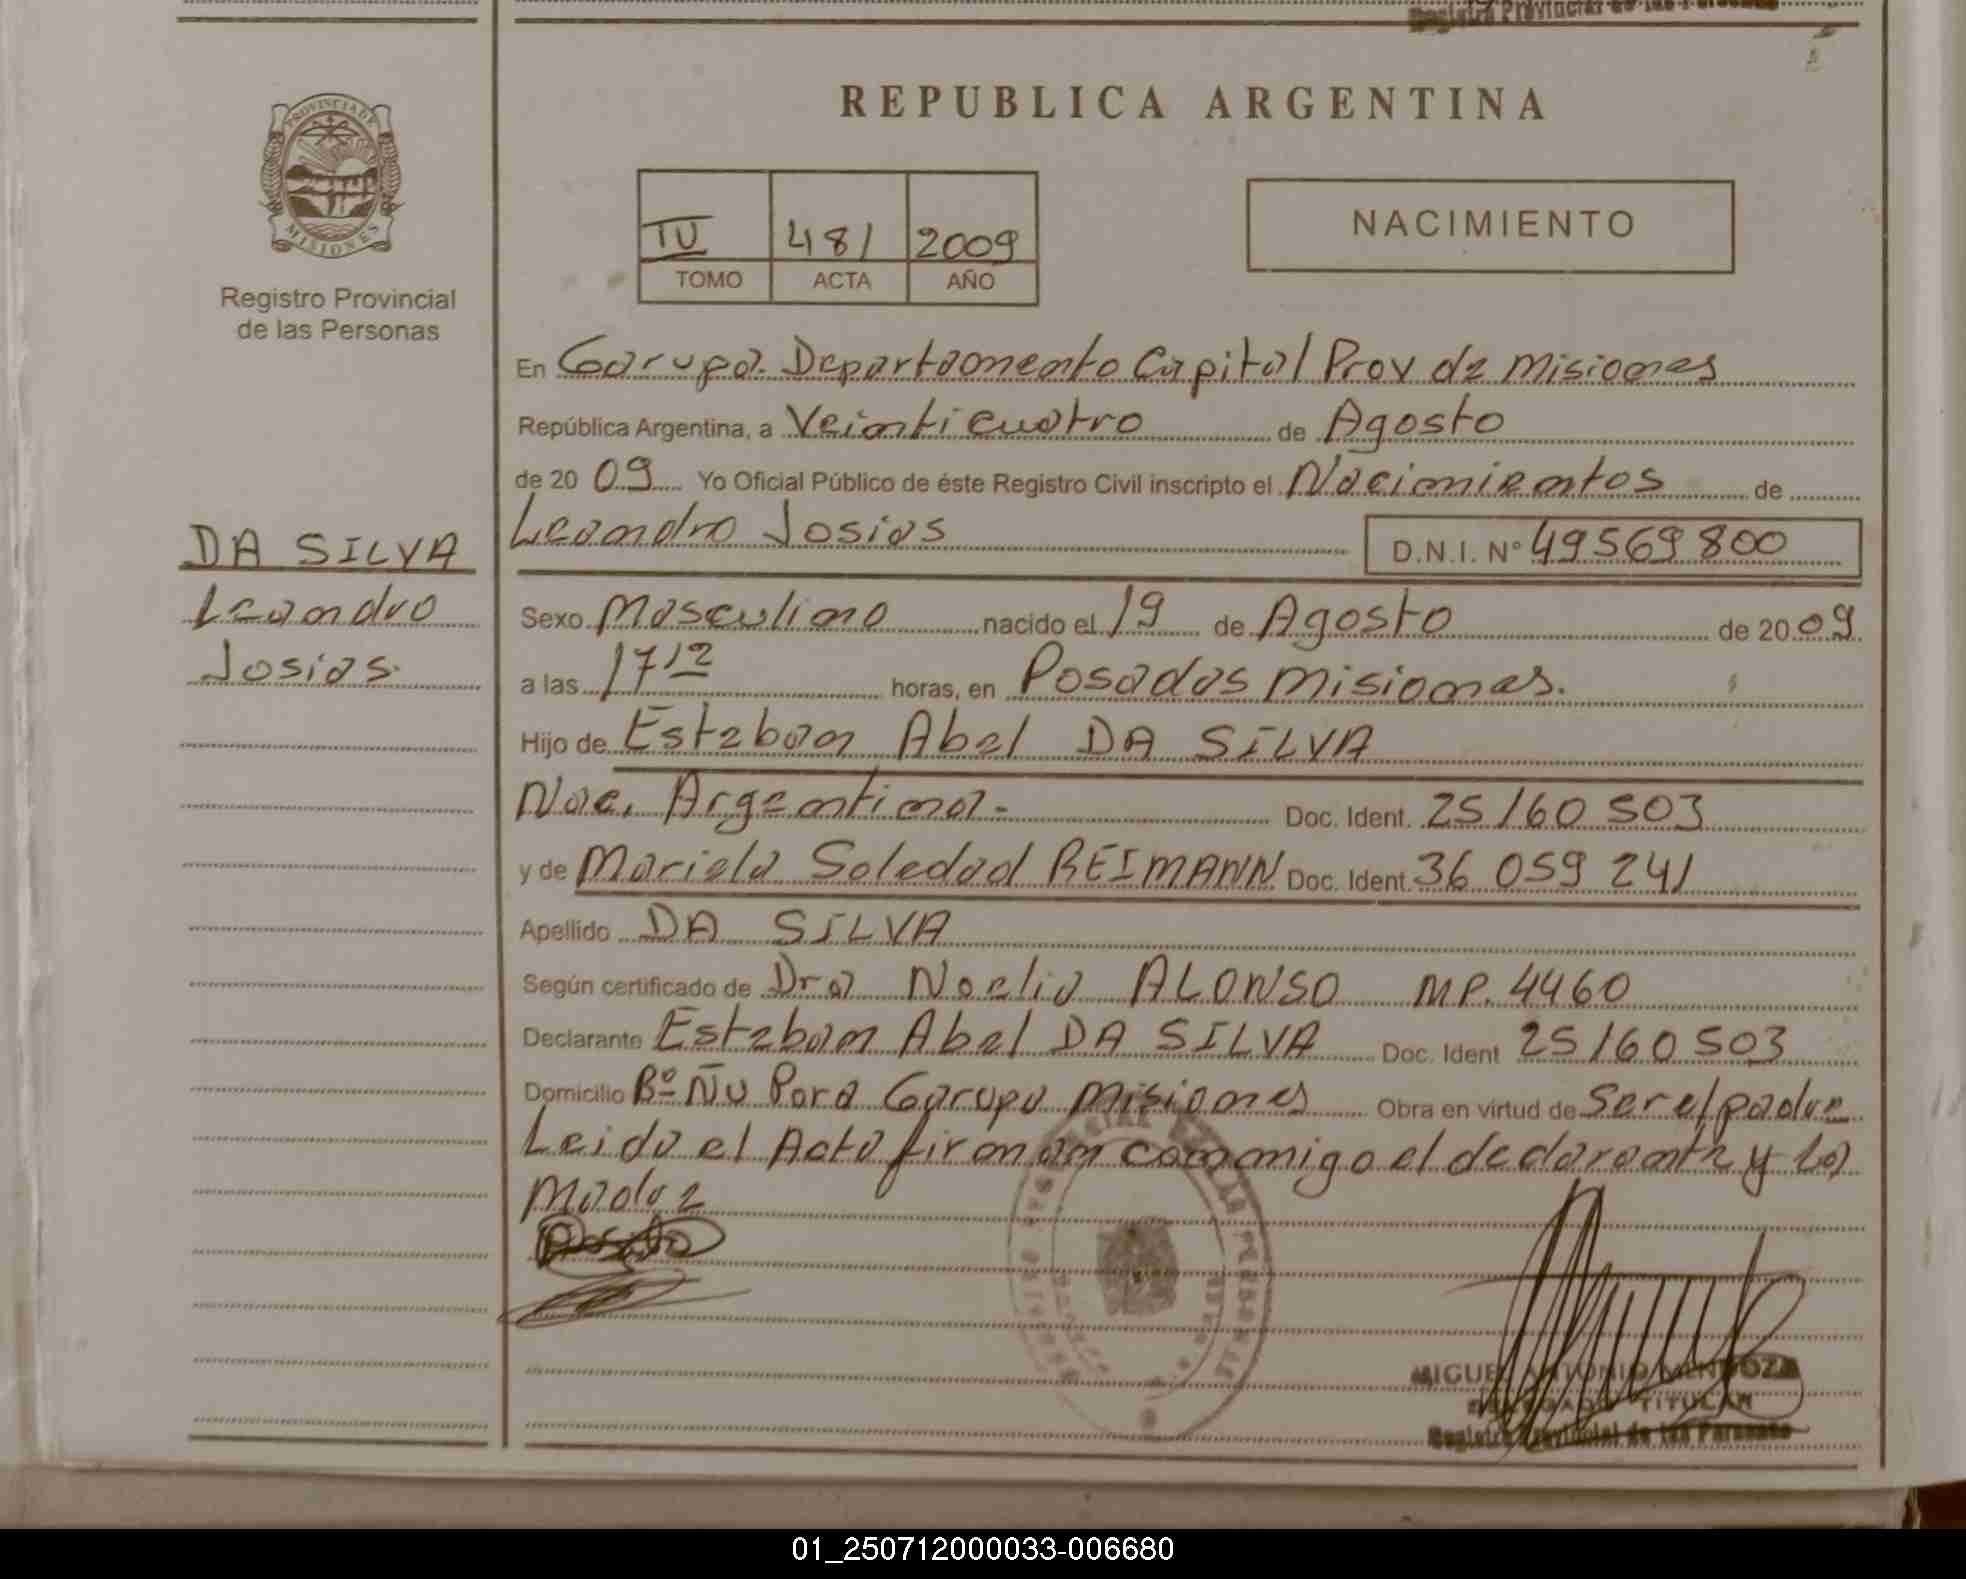 Registro Provincial de las Personas
REPUBLICA ARGENTINA
PROVINCIA DE
MISIONES
Registro Provincial
de las Personas
IV 481 2009
TOMO ACTA AÑO
NACIMIENTO
En Garupa. Departamento Capital Prov de Misiones
República Argentina, a Veinticuatro de Agosto
de 20 09 Yo Oficial Público de éste Registro Civil inscripto el Nacimientos de
Leandro Josias D.N.I. Nº 49569800
DA SILVA
Leandro
Josias.
Sexo Masculino nacido el 19 de Agosto de 20 09
a las 17 12 horas, en Posadas Misiones.
Hijo de Esteban Abel DA SILVA
Nac. Argentina- Doc. Ident. 25160503
y de Mariela Soledad REIMANN Doc. Ident. 36 059 241
Apellido DA SILVA
Según certificado de Dra Noelia ALONSO MP. 4460
Declarante Esteban Abel DA SILVA Doc. Ident 25160503
Domicilio Bº Ñu Pora Garupa Misiones Obra en virtud de Ser el padre
Leida el Acta firman conmigo el declarante y la
Madre
MIGUEL ANTONIO MENDOZA
DELEGADO TITULAR
Registro Provincial de las Personas
01_250712000033-006680